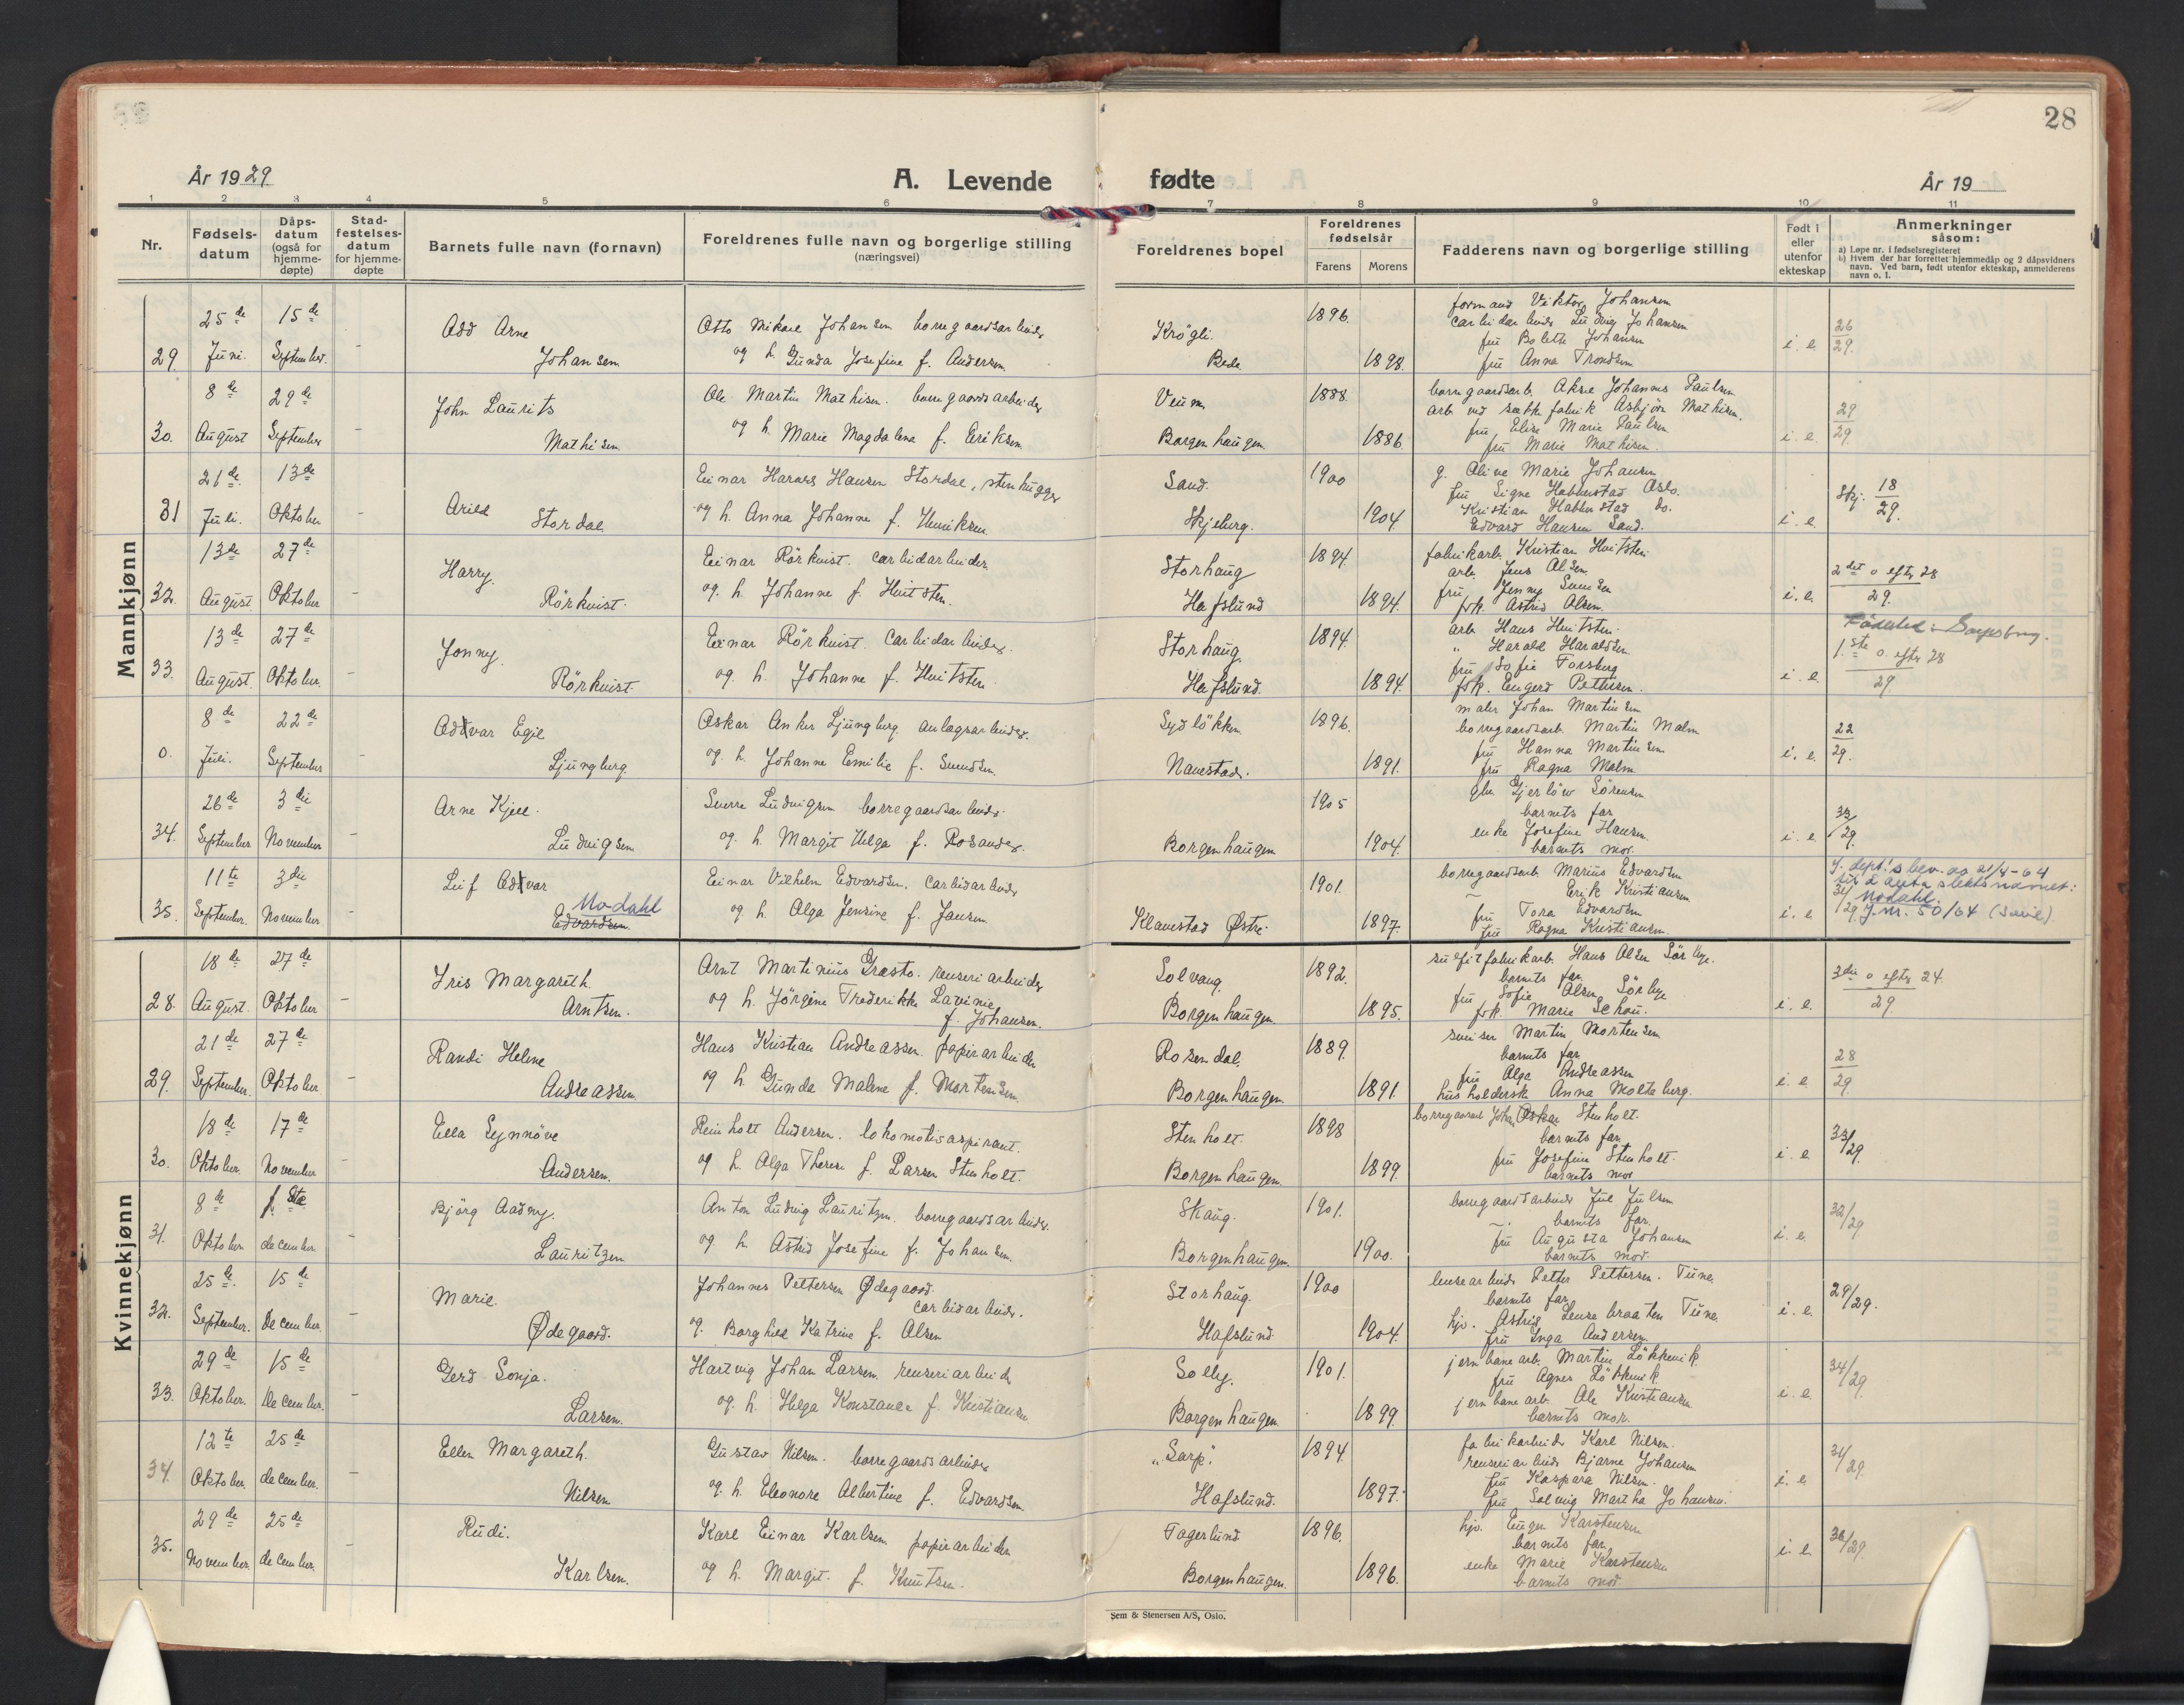 28
År 1929. A. Levende fødte År 19
1 2 3 4 5 6 7 8 9 10 11
Nr.
Fødsels-datum
Dåps-datum (også for hjemme-døpte)
Stad-festelses-datum for hjemme-døpte
Barnets fulle navn (fornavn)
Foreldrenes fulle navn og borgerlige stilling (næringsvei)
Foreldrenes bopel
Foreldrenes fødselsår
Farens Morens
Fadderens navn og borgerlige stilling
Født i eller utenfor ekteskap
Anmerkninger såsom:
a) Løpe nr. i fødselsregisteret
b) Hvem der har forrettet hjemmedåp og 2 dåpsvidners navn. Ved barn, født utenfor ekteskap, anmelderens navn o. l.
Mannkjønn
29. 25de Juni. 15de September. - Odd Arne Johansen
Otto Mikael Johansen borregaardsarbeider
og h. Gunda Josefine f. Andersen.
Krøgli. 1896. 1898.
formand Viktor Johansen
carbidarbeider Ludvig Johansen
fru Bolette Johansen
fru Anna Trondsen
i. e. 26/29.
30. 8de August 29de September John Laurits Mathisen
Ole Martin Mathisen. borregaardsarbeider
og h. Marie Magdalena f. Eriksen
Veum Borgenhaugen 1888. 1886.
borregaardsarb. Johannes Paulsen
Asbjørn Mathisen.
fru Elise Marie Paulsen
fru Marie Mathisen.
i. e. 29/29.
31 21de Juli. 13de Oktober - Arild Stordal
Einar Harals Hansen Stordal, stenhugger
og h. Anna Johanne f. Henriksen
Sand. Skjeberg. 1900 1904.
g. Oline Marie Johansen
fru Signe Habberstad Oslo.
Kristian Habberstad do.
Edvard Hansen Sand.
i. e. Skj. 18/29.
32. 13de August 27de Oktober - Harry. Rörkvist.
Einar Rörkvist. carbidarbeider.
og h. Johanne f. Hvitsten.
Storhaug Hafslund 1894. 1894.
fabrikarb. Kristian Hvitsten
arb. Jens Olsen.
fru Jenny
frk. Astrid Olsen.
i. e. 2det o. eftr 28 29.
33. 13de August. 27de Oktober. - Jonny. Rörkvist.
Einar Rörkvist. Carbidarbeider.
og h. Johanne f. Hvitsten
Storhaug Hafslund. 1894. 1894.
arb. Hans Hvitsten.
" Harald Haraldsen
fru Sofie Forsberg
frk. Engerd Pettersen.
i. e. Sarpsborg. 1.ste o. eftr 28 29.
0. 8de Juli. 22de September - Oddvar Egil Ljungberg.
Oskar Anker Ljungberg. anlægsarbeider.
og h. Johanne Emilie f. Svendsen.
Sydløkken Navestad. 1896. 1891.
maler Johan Martinsen
borregaardsarb. Martin Malm
fru Hanna Martinsen
fru Ragna Malm
i. e. 22/29.
34. 26de September 3die November - Arne Kjell. Ludvigsen
Sverre Ludvigsen borregaardsarbeider.
og h. Margit Helga f. Rosander.
Borgenhaugen 1905 1904.
Gjerlöw Sörensen
barnets far
enke Josefine Hansen.
barnets mor.
i. e. 33/29.
35. 11te September. 3die November. - Leif Oddvar Edvardsen. Modahl
Einar Vilhelm Edvardsen. Carbidarbeider
og h. Olga Jensine f. Jansen
Klavestad Østre. 1901. 1897.
borregaardsarb. Marius Edvardsen
~ Erik Kristiansen
fru Tora Edvardsen
fru Ragna Kristiansen.
i. e. J.dept.s bev. av 21/4-64
til å anta slektsnavnet:
31/29 Modahl.
J.nr. 50/64
Kvinnekjønn
28. 18de August. 27de Oktober - Iris Margareth. Arntsen.
Arnt Martinius Græsto. renseriarbeider
og h. Jørgine Frederikke Lavinie
f. Johansen.
Solvang. Borgenhaugen 1892. 1895.
sulfitfabrikarb. Hans Olsen Sörbye.
barnets far
fru Sofie Olsen Sörbye
frk. Marie Schou.
i. e. 3die o eftr 24. 29.
29. 21de September. 27de Oktober - Randi Helene Andreassen.
Hans Kristian Andreassen. papirarbeider
og h. Gunda Malene f. Mortensen
Rosendal. Borgenhaugen. 1889. 1891.
Martin Mortensen
barnets far
fru Olga Andreassen
husholderske Anna Molteberg.
i. e. 28/29
30. 18de Oktober. 17de November - Ella Synnöve Andersen.
Reinholt Andersen. lokomotivaspirant.
og h. Olga Therese f. Larsen Stenholt.
Stenholt. Borgenhaugen. 1898 1899.
borregaardsarb. Johan Oskar Stenholt.
barnets far
fru Josefine Stenholt.
barnets mor
i. e. 33/29.
31. 8de Oktober 1ste december. Bjørg Aadny. Lauritzen
Anton Ludvig Lauritzen. borregaardsarbeider.
og h. Astrid Josefine f. Johansen.
Skaug. Borgenhaugen. 1901. 1900.
borregaardsarbeider Jul Julsen
~. barnets far.
fru Augusta Johansen
barnets mor.
i. e. 32/29
32. 25de September. 15de December. - Marie. Ødegaard.
Johannes Pettersen Ødegaard.
carbidarbeider.
og Borghild Katrine f. Olsen
Storhaug. Hafslund. 1900 1904.
lensearbeider Petter Pettersen. Tune.
barnets far
hjv. Astrid Lensebraaten Tune.
fru Inga Andersen.
i. e. 29/29.
33. 29de Oktober. 15de December. - Gerd Sonja. Larsen.
Hartvig Johan Larsen. renseriarbeider
og h. Helga Konstance f. Kristiansen
Solby. Borgenhaugen. 1901. 1899
jernbanearb. Martin Løkkevik.
fru Agnes Løkkevik.
jernbanearb. Ole Kristiansen
barnets mor.
i. e. 34/29.
34. 12te Oktober. 25de december. - Ellen Margareth. Nilsen
Gustav Nilsen. borregaardsarbeider
og h. Eleonore Albertine f. Edvardsen.
"Sarp". Hafslund. 1894. 1897.
fabrikarbeider Karl Nilsen.
renseriarbeider Bjarne Johansen
fru Kaspara Nilsen.
fru Solveig Martha Johansen.
i. e. 31/29.
35. 29de November. 25de december. Rudi. Karlsen.
Karl Einar Karlsen papirarbeider
og h. Margit. f. Knutsen.
Fagerlund. Borgenhaugen. 1896. 1896.
hjv. Eugen Karstensen
barnets far.
enke Marie Karstensen
barnets mor.
i. e. 36/29.
Sem & Stenersen A/S, Oslo.